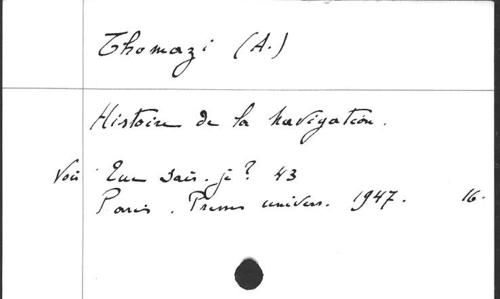 Thomazi (A.)
Histoire de la Navigation.
Voir Que sais-je? 43
Paris. Presses univers. 1947. 16.